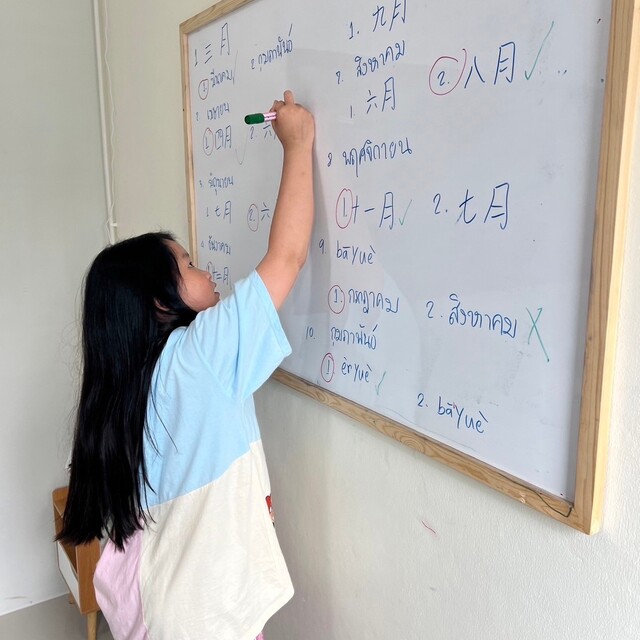 1 三月
1. มีนาคม 2. กุมภาพันธ์
2. เมษายน
1. 四月 2. 六
3. มิถุนายน
1. 七月 2. 六
ธันวาคม
十二月
1. 九月
7. สิงหาคม
1. 六月 2. 八月
8 พฤศจิกายน
1. 十一月 2. 七月
9. bāyuè
1. กรกฎาคม 2. สิงหาคม
10. กุมภาพันธ์
1 èryuè 2. bāyuè